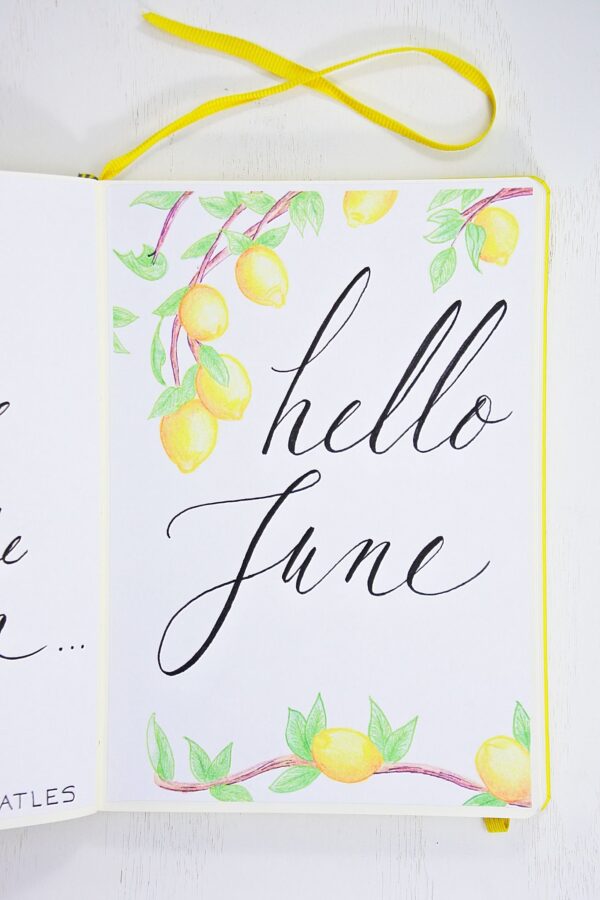 ATLES
hello
June